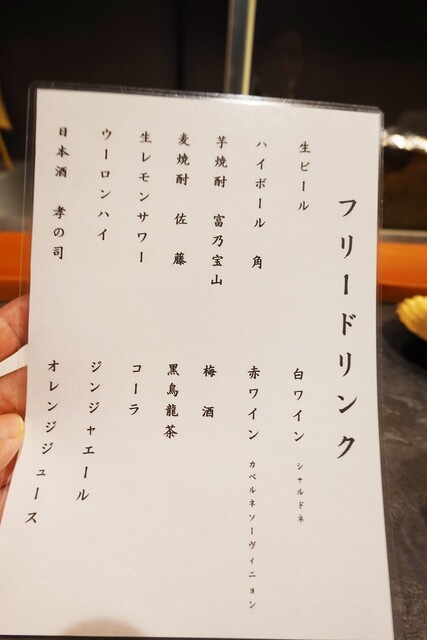 フリードリンク
生ビール
ハイボール 角
芋焼酎 富乃宝山
麦焼酎 佐藤
生レモンサワー
ウーロンハイ
日本酒 孝の司
白ワイン シャルドネ
赤ワイン カベルネソーヴィニョン
梅酒
黒烏龍茶
コーラ
ジンジャエール
オレンジジュース